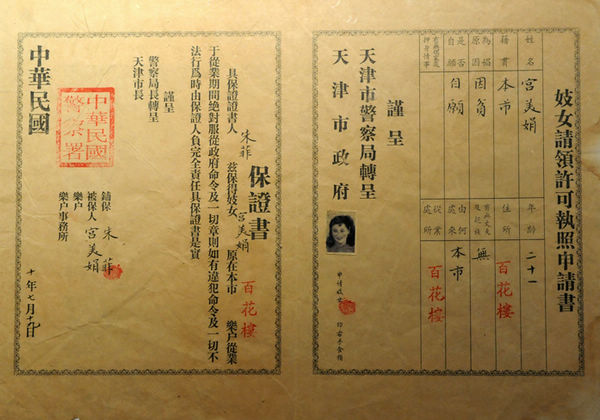 妓女請領許可執照申請書
姓名 宮美娟 年齡 二十一
籍貫 本市 住所 百花樓
為娼原因 因窮 有無丈夫及親族 無
是否自願 自願 由何處來 本市
從業處所 百花樓
謹呈
天津市警察局轉呈
天津市政府
申請妓女 印右手食指
保證書
具保證證書人 朱菲 茲保得妓女 宮美娟 原在本市 百花樓 樂户從業
于從業期間絕對服從政府命令及一切章則如有違犯命令及一切不
法行爲時由保證人負完全責任具保證書是實
謹呈
警察局長轉呈
天津市長
中華民國
警察署
鋪保 朱菲
被保人 宮美娟
樂户
樂户事務所
中華民國
十年七月十九日